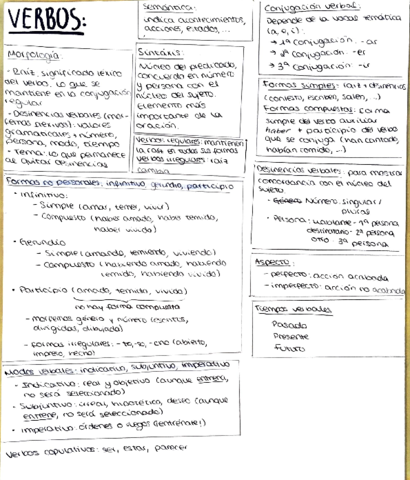 VERBOS:
Semántica:
indica acontecimientos,
acciones, estados, ...
Morfología:
- Raíz, significado léxico
del verbo, lo que se
mantiene en la conjugación
regular
- Desinencias verbales (mor-
femas verbos): valores
gramaticales → número,
persona, modo, tiempo
- Tema: lo que permanece
al quitar desinencias
Sintaxis:
Núcleo del predicado,
concuerda en número
y persona con el
núcleo del sujeto.
Elemento más
importante de la
oración.
Verbos regulares: mantienen
la raíz en todas sus formas
Verbos irregulares: raíz
cambia
Formas no personales: infinitivo, gerundio, participio
- Infinitivo:
- Simple (amar, temer, vivir)
- Compuesto (haber amado, haber temido,
haber vivido)
- Gerundio
- Simple (amando, temiendo, viviendo)
- Compuesto (habiendo amado, habiendo
temido, habiendo vivido)
- Participio (amado, temido, vivido)
no hay forma compuesta
- morfemas género y número (escritas,
dirigidas, dibujada)
- formas irregulares: -to, -so, -cho (abierto,
impreso, hecho)
Modos verbales: indicativo, subjuntivo, imperativo
- Indicativo: real y objetivo (aunque
no será seleccionado)
- Subjuntivo: irreal, hipotético, deseo (aunque
entrene, no será seleccionado)
- Imperativo: órdenes o ruegos (¡entrénate!)
Verbos copulativos: ser, estar, parecer
Conjugación verbal:
Depende de la vocal temática
(a, e, i):
→ 1ª conjugación: -ar
→ 2ª conjugación: -er
→ 3ª conjugación: -ir
Formas simples: raíz + desinencias
(contesto, escriben, salen, ...)
Formas compuestas: forma
simple del verbo auxiliar
haber + participio del verbo
que se conjuga (han cantado,
habían comido, ...)
Desinencias verbales: para mostrar
concordancia con el núcleo del
sujeto
- Número: singular /
plural
- Persona: hablante - 1ª persona
destinatario - 2ª persona
otro - 3ª persona
Aspecto:
- perfecto: acción acabada
- imperfecto: acción no acabada
Tiempos verbales
Pasado
Presente
Futuro